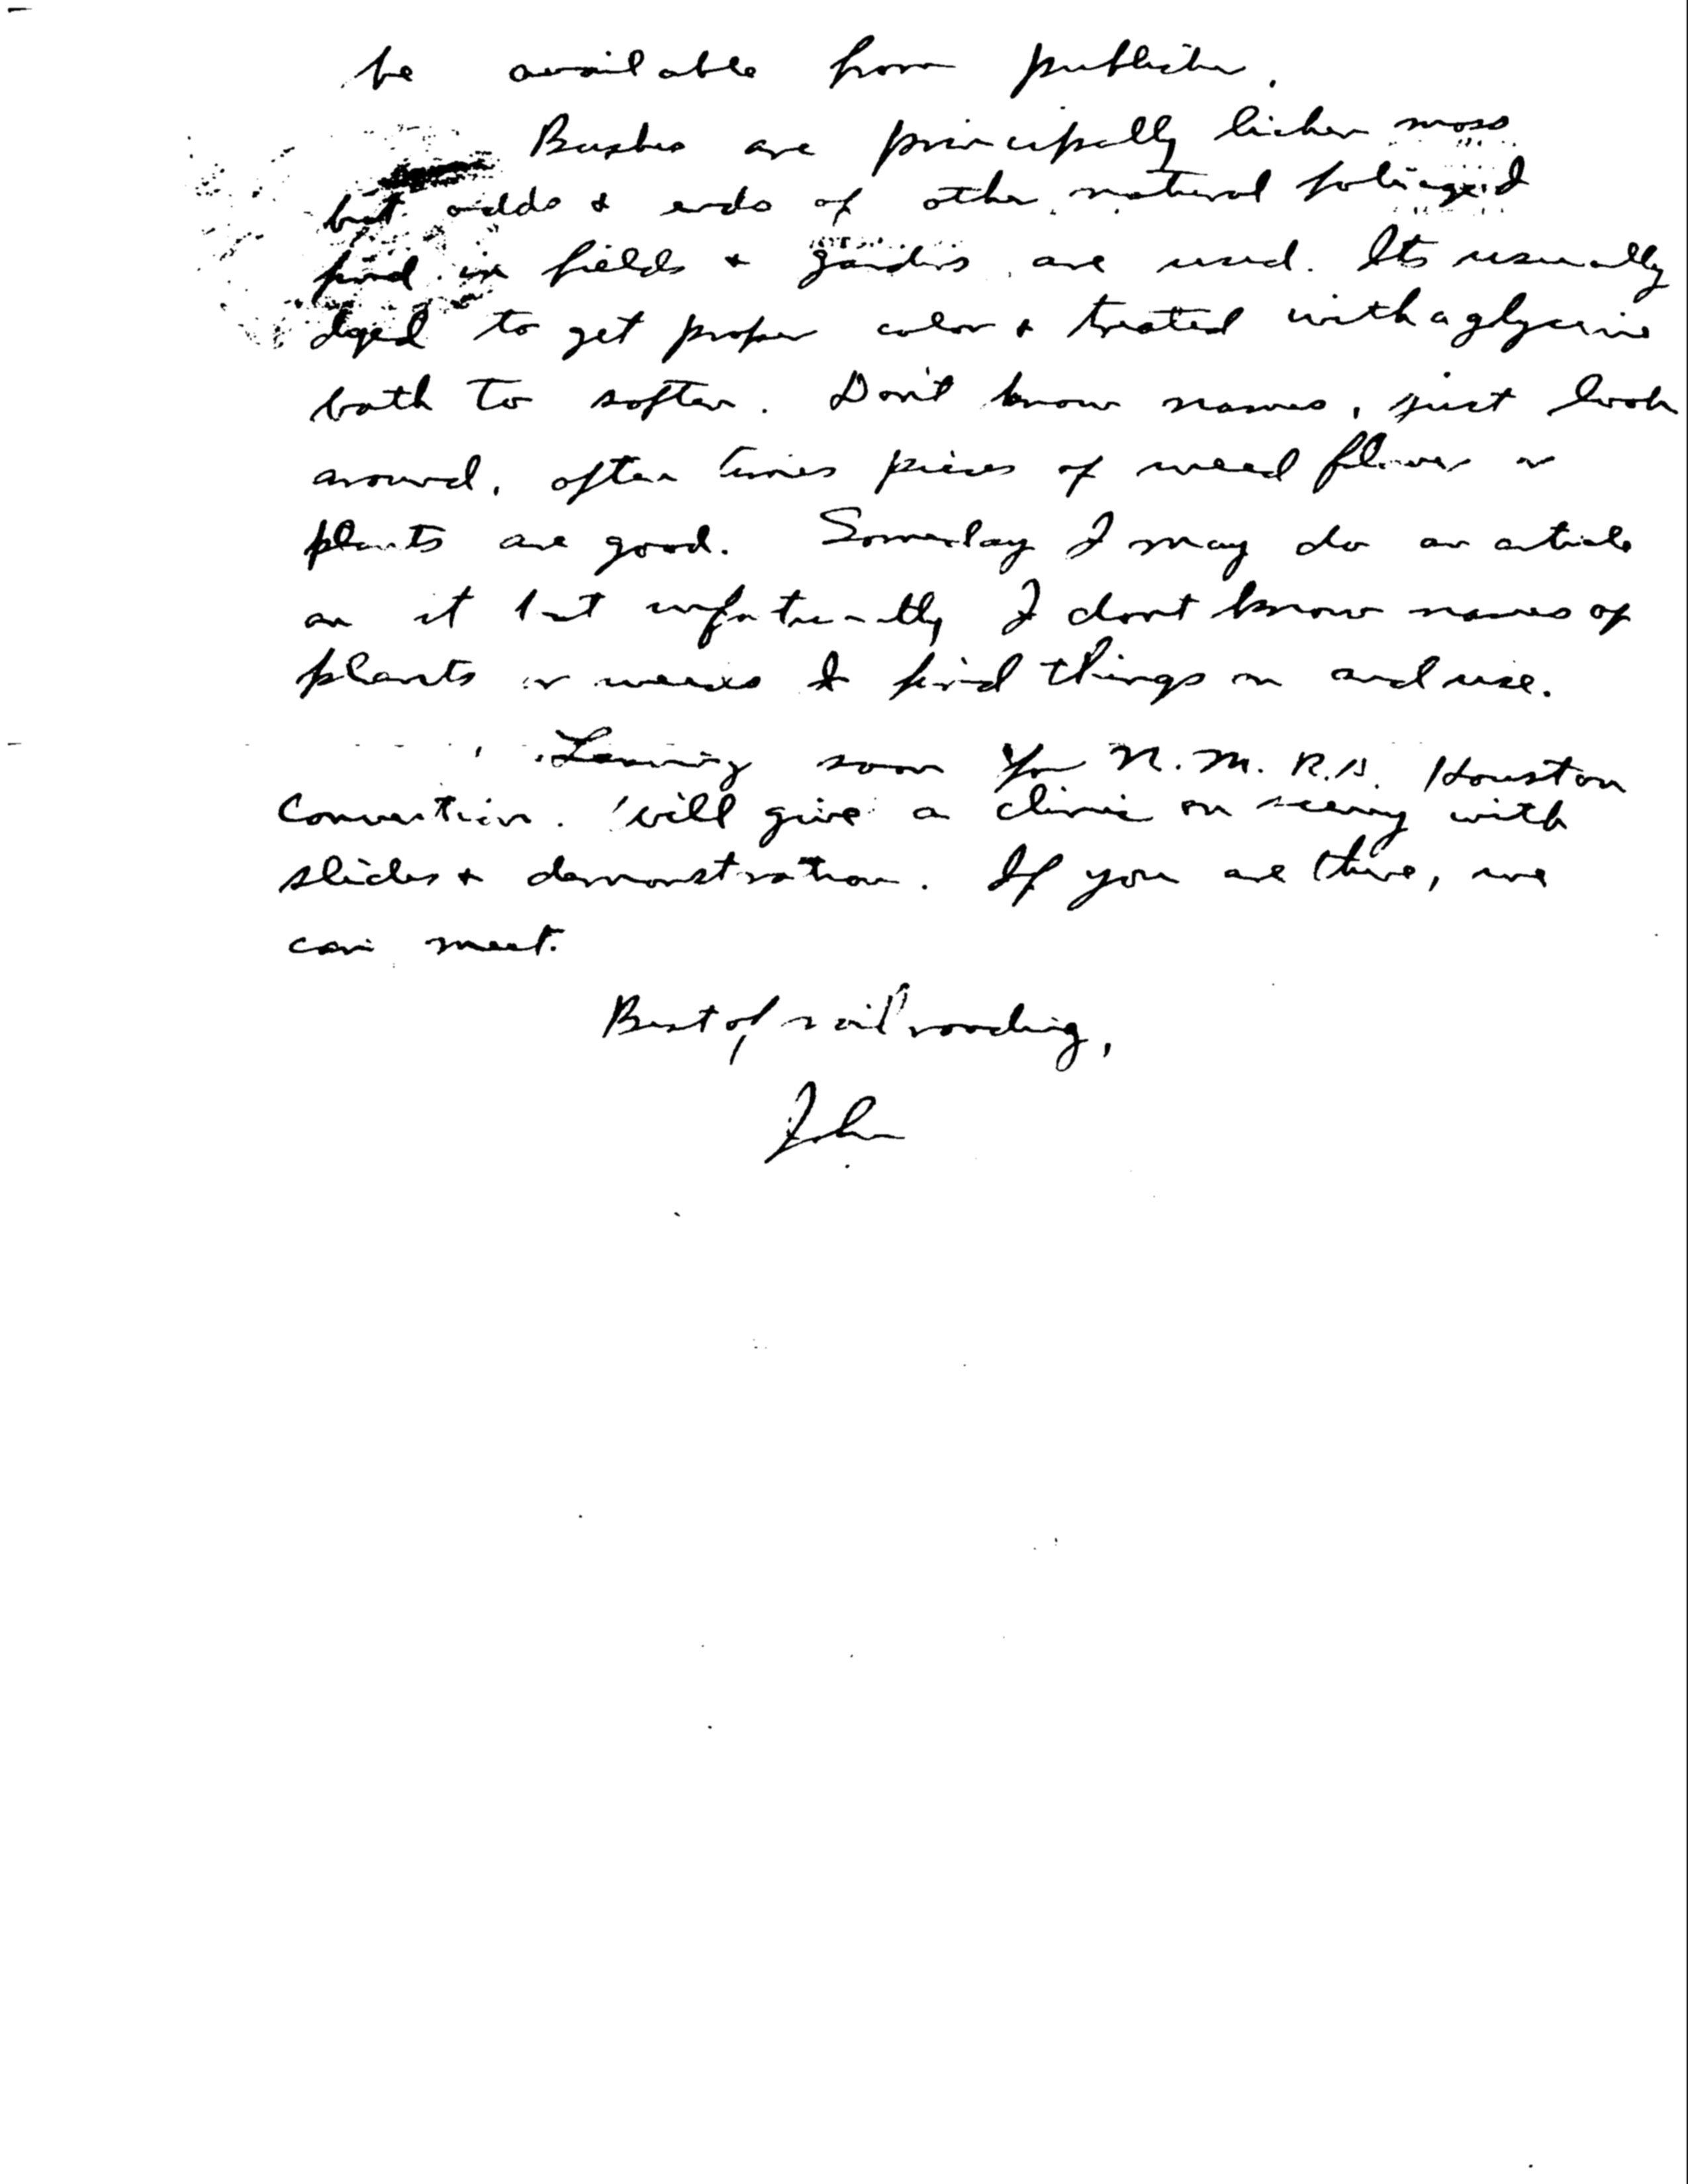 be available from publisher.
Bushes are principally lichen moss
but odds & ends of other natural foliage I
find in fields & gardens are used. Its usually
dyed to get proper color & treated with a glycerine
bath to soften. Don't know names, just look
around, often times pieces of weed flower or
plants are good. Someday I may do an article
on it but unfortunately I dont know names of
plants or weeds I find things on and use.
Leaving soon for N.M.R.A. Houston
Convention. Will give a clinic on scenery with
slides & demonstration. If you are there, we
can meet.
Best of railroading,
John